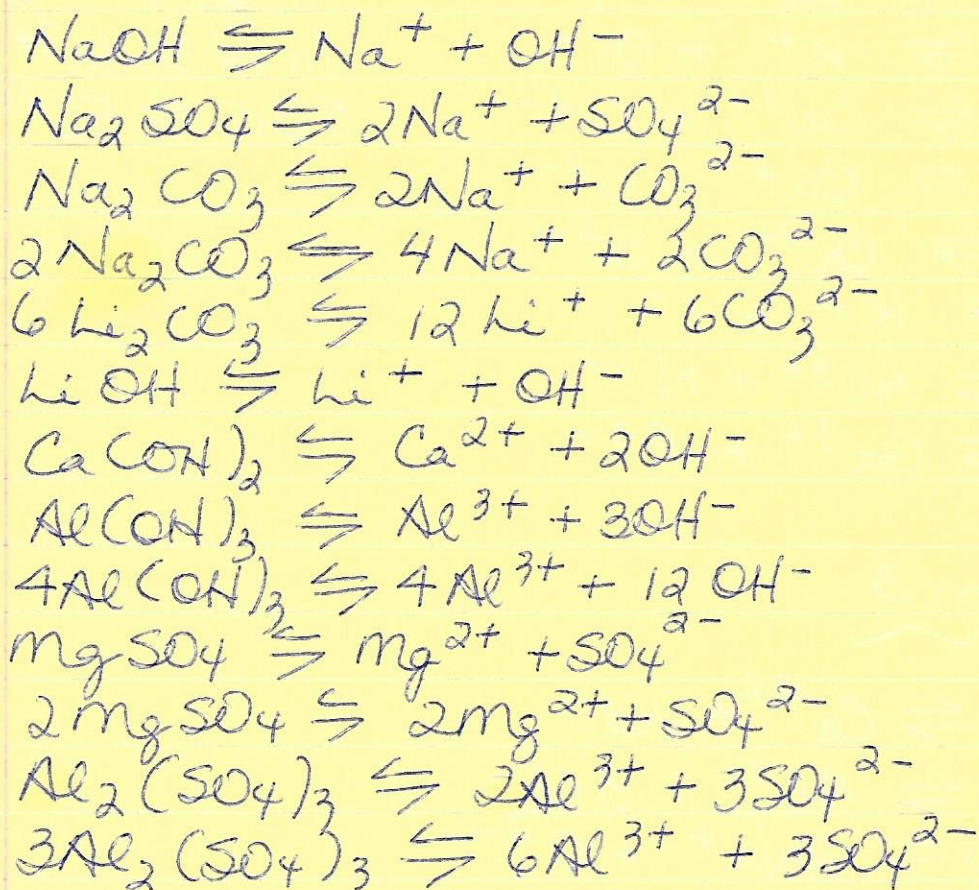 NaOH ⇆ Na⁺ + OH⁻
Na₂SO₄ ⇆ 2Na⁺ + SO₄²⁻
Na₂CO₃ ⇆ 2Na⁺ + CO₃²⁻
2Na₂CO₃ ⇆ 4Na⁺ + 2CO₃²⁻
6Li₂CO₃ ⇆ 12Li⁺ + 6CO₃²⁻
LiOH ⇆ Li⁺ + OH⁻
Ca(OH)₂ ⇆ Ca²⁺ + 2OH⁻
Al(OH)₃ ⇆ Al³⁺ + 3OH⁻
4Al(OH)₃ ⇆ 4Al³⁺ + 12OH⁻
MgSO₄ ⇆ Mg²⁺ + SO₄²⁻
2MgSO₄ ⇆ 2Mg²⁺ + SO₄²⁻
Al₂(SO₄)₃ ⇆ 2Al³⁺ + 3SO₄²⁻
3Al₂(SO₄)₃ ⇆ 6Al³⁺ + 3SO₄²⁻